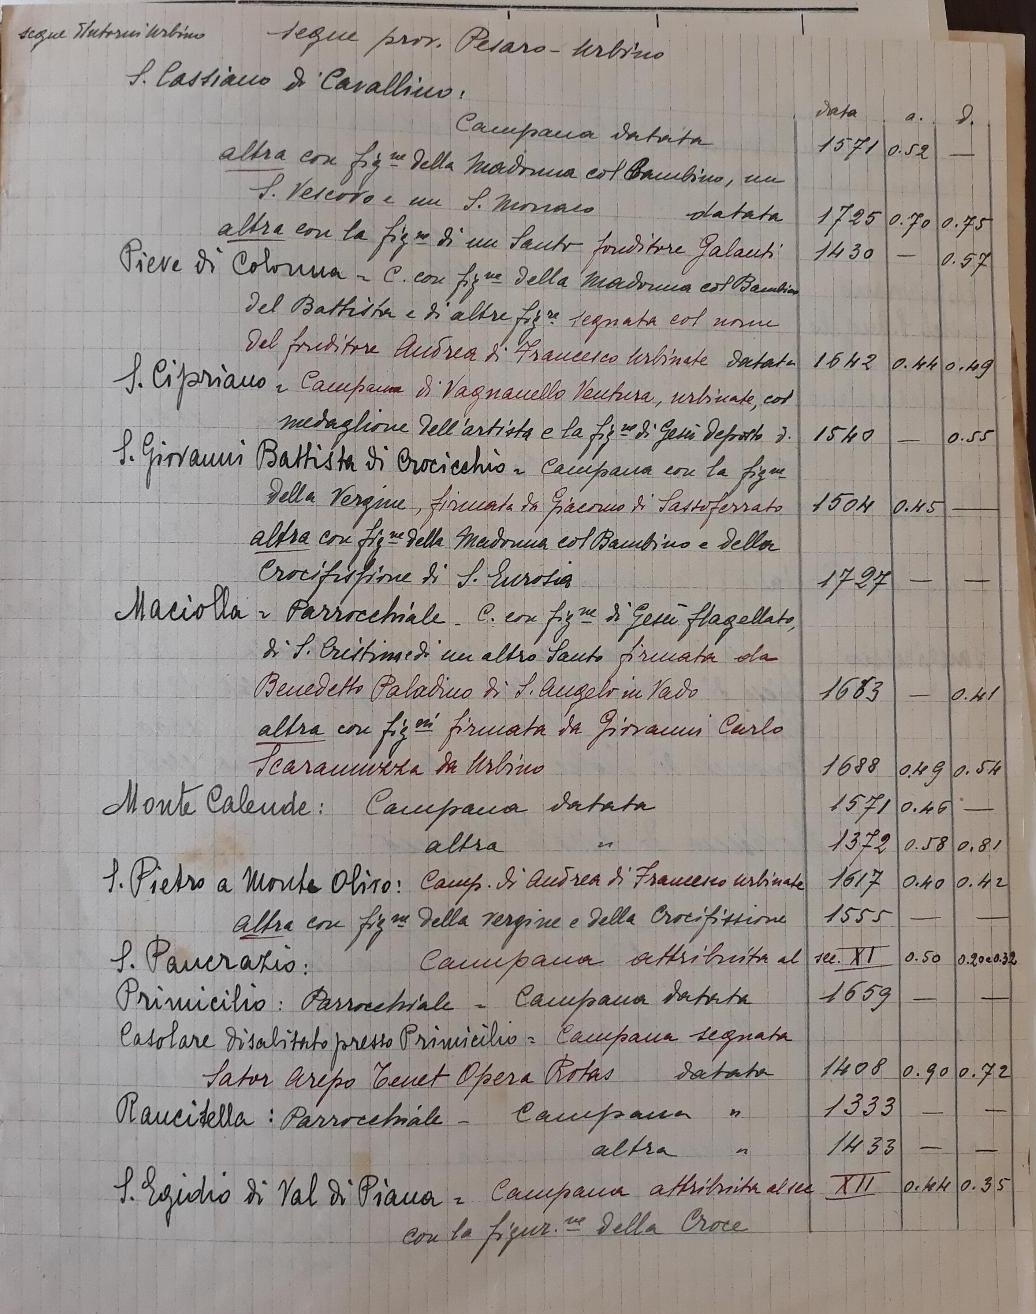 segue Dintorni Urbino segue prov. Pesaro-Urbino
S. Cassiano di Cavallino:
data a. d.
Campana datata 1571 0.52 —
altra con fig.ne della Madonna col Bambino, un
S. Vescovo e un S. Monaco datata 1725 0.70 0.75
altra con la fig.ne di un Santo fonditore Galanti 1430 — 0.57
Pieve di Colonna = C. con fig.ne della Madonna col Bambino
del Battista e di altre fig.re segnata col nome
del fonditore Andrea di Francesco Urbinate datata 1642 0.44 0.49
S. Cipriano = Campana di Vagnanello Ventura, urbinate, col
medaglione dell'artista e la fig.ne di Gesù deposto d. 1540 — 0.55
S. Giovanni Battista di Crocicchio = Campana con la fig.ne
della Vergine, firmata da Giacomo di Sassoferrato 1504 0.45 —
altra con fig.ne della Madonna col Bambino e della
Crocifissione di S. Eurosia 1727 — —
Maciolla = Parrocchiale - C. con fig.ne di Gesù flagellato,
di S. Cristina e di un altro Santo firmata da
Benedetto Paladino di S. Angelo in Vado 1683 — 0.41
altra con fig.ni firmata da Giovanni Carlo
Scaramuzza da Urbino 1688 0.49 0.54
Monte Calende: Campana datata 1571 0.46 —
altra " 1372 0.58 0.81
S. Pietro a Monte Olivo: Camp. di Andrea di Francesco urbinate 1617 0.40 0.42
altra con fig.ne della Vergine e della Crocifissione 1555 — —
S. Pancrazio: Campana attribuita al sec. XI 0.50 0.20e0.32
Primicilio: Parrocchiale - Campana datata 1659 — —
Casolare disabitato presso Primicilio = Campana segnata
Sator Arepo Tenet Opera Rotas datata 1408 0.90 0.72
Rancitella: Parrocchiale - Campana " 1333 — —
altra " 1433 — —
S. Egidio di Val di Piana = Campana attribuita al sec XII 0.44 0.35
con la figur.ne della Croce